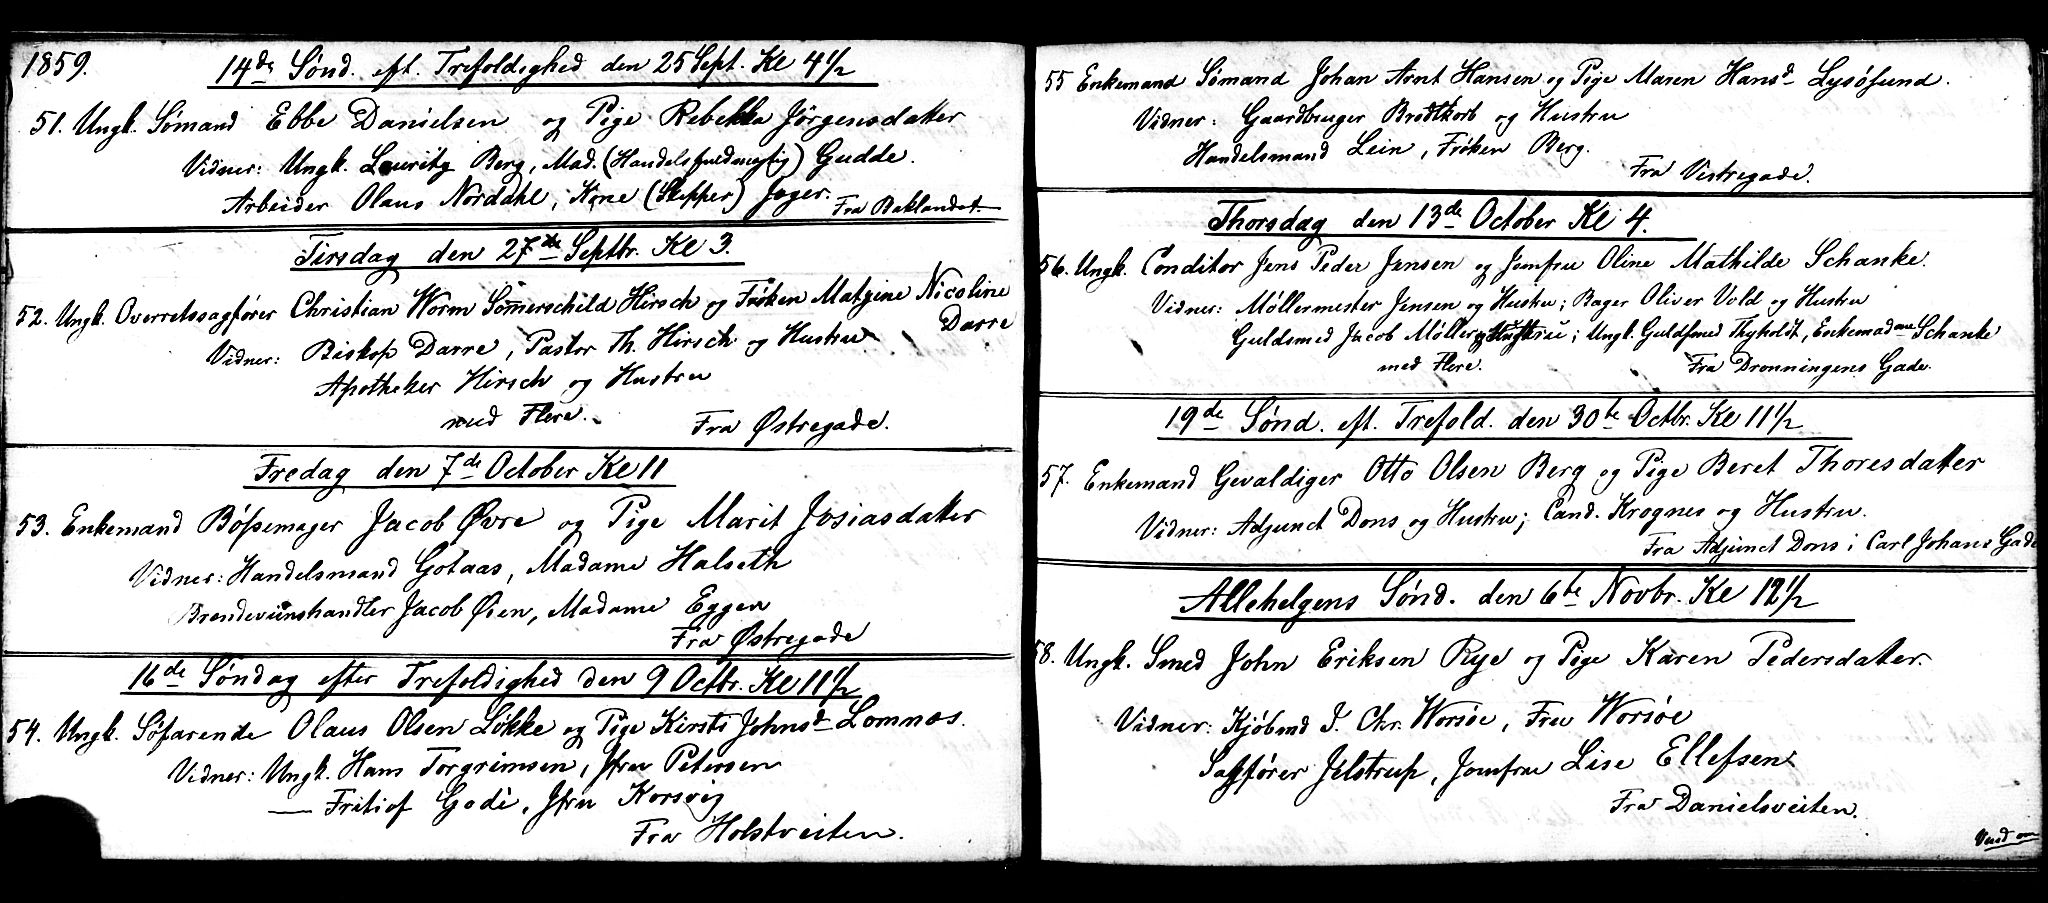 1859.
14de Sönd. eft. Trefoldighed den 25 Sept. Kl 4½
51. Ungk. Sömand Ebbe Danielsen og Pige Rebekka Jörgensdatter
Vidner: Ungk. Lauritz Berg, Mad. (Handelsfuldmægtig) Gudde.
Arbeider Olaus Nordahl, Kone (Skipper) Jeger. Fra Baklandet.
Tirsdag den 27de Septbr. Kl 3.
52. Ungk. Overretssagförer Christian Worm Sommerschild Hirsch og Fröken Matzine Nicoline
Darre
Vidner: Biskop Darre, Pastor Th. Hirsch og Hustru
Apotheker Hirsch og Hustru
med Flere.
Fra Østregade.
Fredag den 7de October Kl 11
53. Enkemand Bössemager Jacob Øvre og Pige Marit Josiasdatter
Vidner: Handelsmand Gotaas, Madame Halseth
Brendeviinshandler Jacob Øien, Madame Eggen
Fra Østregade
16de Söndag efter Trefoldighed den 9 Octbr. Kl 11½
54. Ungk. Söfarende Olaus Olsen Lökke og Pige Kirsti Johnsd Lomnæs.
Vidner: Ungk. Hans Torgrimsen, Jfru Petersen
— Fritiof Gade, Jfru Korsvig
Fra Holstveiten.
55 Enkemand Sömand Johan Arnt Hansen og Pige Maren Hansd Lysösund.
Vidner: Gaardbruger Brodtkorb og Hustru
Handelsmand Lein, Fröken Berg.
Fra Vestregade.
Thorsdag den 13de October Kl 4.
56. Ungk. Conditor Jens Peder Jensen og Jomfru Oline Mathilde Schanke.
Vidner: Möllermester Jensen og Hustru; Bager Oliver Vold og Hustru
Guldsmed Jacob Möller og Hustru; Ungk. Guldsmed Thyholdt, Enkemadme Schanke
med Flere.
Fra Dronningens Gade.
19de Sönd. eft. Trefold. den 30te Octbr. Kl 11½
57. Enkemand Gevaldiger Otto Olsen Berg og Pige Beret Thoresdatter
Vidner: Adjunct Dons og Hustru; Cand. Krognes og Hustru.
Fra Adjunct Dons i Carl Johans Gade
Allehelgens Sönd. den 6te Novbr. Kl 12½
58. Ungk. Smed John Eriksen Rye og Pige Karen Pedersdatter.
Vidner: Kjöbmd J. Chr. Worsöe, Fru Worsöe
Sagförer Jelstrup, Jomfru Lise Ellefsen
Fra Danielsveiten.
Vend om